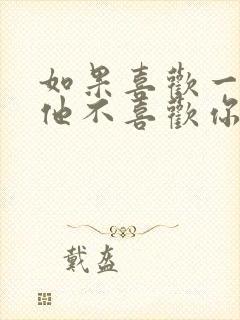 如果喜歡一
他不喜歡你
戴盔